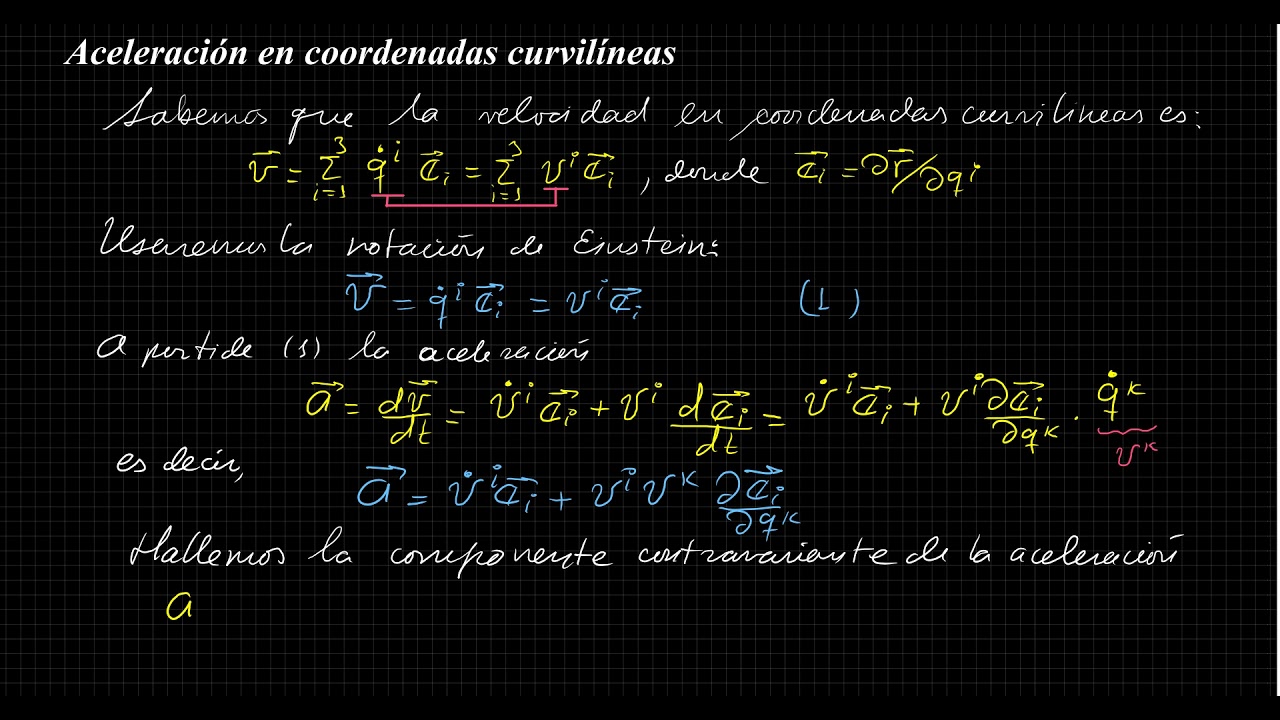 Aceleración en coordenadas curvilíneas
Sabemos que la velocidad en coordenadas curvilineas es:
v⃗ = Σ³ᵢ₌₁ q̇ⁱ e⃗ᵢ = Σ³ᵢ₌₁ vⁱ e⃗ᵢ , donde e⃗ᵢ = ∂r⃗/∂qⁱ
Usaremos la notación de Einstein:
v⃗ = q̇ⁱ e⃗ᵢ = vⁱ e⃗ᵢ (1)
A partir de (1) la aceleración
a⃗ = dv⃗/dt = v̇ⁱ e⃗ᵢ + vⁱ de⃗ᵢ/dt = v̇ⁱ e⃗ᵢ + vⁱ ∂e⃗ᵢ/∂qᵏ · q̇ᵏ
vᵏ
es decir,
a⃗ = v̇ⁱ e⃗ᵢ + vⁱ vᵏ ∂e⃗ᵢ/∂qᵏ
Hallemos la componente contravariante de la aceleración
a